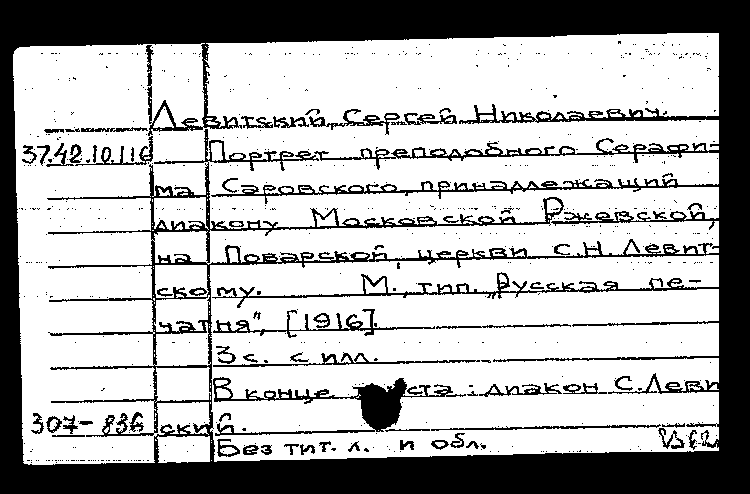 Левитский, Сергей Николаевич.
37.42.10.116 Портрет преподобного Серафи-
ма Саровского, принадлежащий
диакону Московской Ржевской,
на Поварской, церкви С.Н. Левит-
скому. М., тип. „Русская пе-
чатня", [1916].
3 с. с илл.
В конце : диакон С. Леви
307-836 ский.
Без тит. л. и обл.